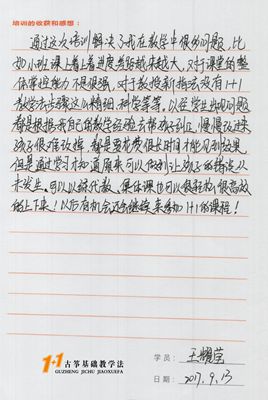 培训的收获和感想：
通过这次培训解决了我在教学中很多问题，比
如小班课上着上着进度差距越来越大，对于课堂的整
体掌控能力不是很强，对于教授新指法没有1+1
教学法步骤这么精细，科学等等，以经学生出现问题
都是根据我自己的教学经验去帮孩子纠正，慢慢改过来
孩子很难改掉，都是要花费很长时间才能见到效果
但是通过学习才知道原来可以做到让孩子的错误从
未发生，可以以练代教，集体课也可以很轻松很高效
的上下来！以后有机会还会继续来参加1+1的课程！
1+1 古筝基础教学法
GUZHENG JICHU JIAOXUEFA
学员：王耀莹
日期：2017.9.13